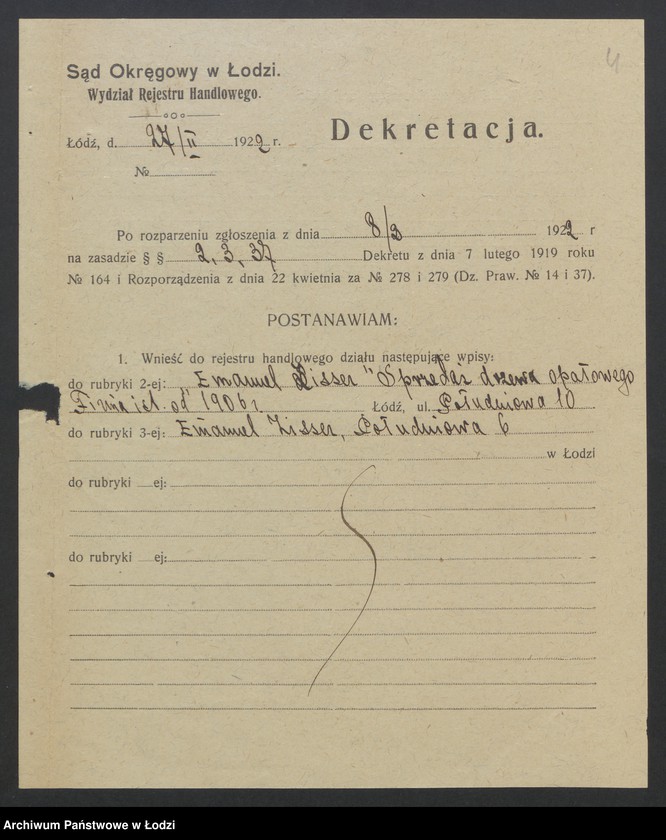 4
Sąd Okręgowy w Łodzi.
Wydział Rejestru Handlowego.
Dekretacja.
Łódź, d. 27/II 1922 r.
№
Po rozparzeniu zgłoszenia z dnia 8/2 1922 r
na zasadzie § § 2, 3, 37 Dekretu z dnia 7 lutego 1919 roku
№ 164 i Rozporządzenia z dnia 22 kwietnia za № 278 i 279 (Dz. Praw. № 14 i 37).
POSTANAWIAM:
1. Wnieść do rejestru handlowego działu następujące wpisy:
do rubryki 2-ej: „Emanuel Zisser" Sprzedaż drzewa opałowego
Firma ist. od 1906 r. Łódź, ul. Południowa 10
do rubryki 3-ej: Emanuel Zisser, Południowa 6
w Łodzi
do rubryki ej:
do rubryki ej:
Archiwum Państwowe w Łodzi